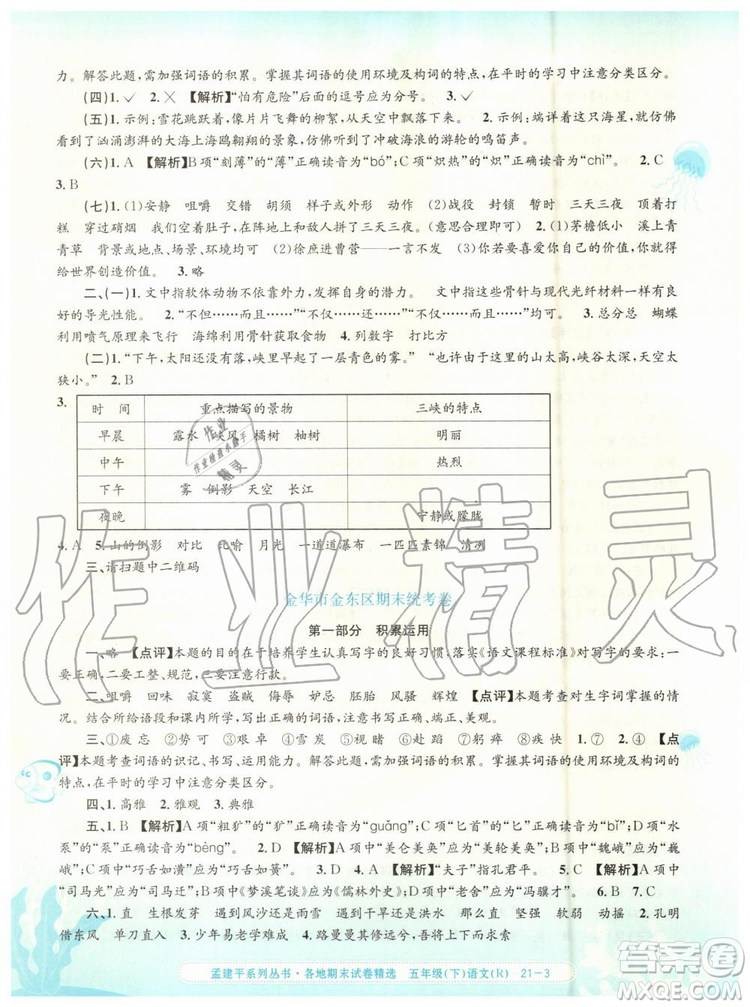 力。解答此题,需加强词语的积累。掌握其词语的使用环境及构词的特点,在平时的学习中注意分类区分。
(四)1.✓ 2.✕ 【解析】“怕有危险”后面的逗号应为分号。 3.✓
(五)1.示例:雪花跳跃着,像片片飞舞着的柳絮,从天空中飘落下来。 2.示例:端详着这只海星,就仿佛
看到了汹涌澎湃的大海上海鸥翱翔的景象,就仿佛听到了冲破海浪的游轮的鸣笛声。
(六)1.A 【解析】B项“刻薄”的“薄”正确读音为“bó”;C项“炽热”的“炽”正确读音为“chì”。 2.C
3.B
(七)1.(1)安静 咀嚼 外形或外形 动作 (2)战役 封锁 暂时 三天三夜 (3)不停地打
糕 穿过硝烟 我们空着肚子,在阵地上和敌人拼了三天三夜。(意思合理即可) 2.(1)茅檐低小 溪上青
青草 背景或地点、场景、环境均可 (2)徐庶进曹营——一言不发 (3)人们要知道自己的价值,你就得
给世界创造价值。 3.略
二、(一)1.文中指软体动物不依靠外力,依靠自身前行。 文中指这些骨针与现代光纤材料一样具有
好的导光性能。 2.“不仅……而且……”“不但……还……”“不仅……而且……”均可。 3.总分总 蝴蝶
利用喷气原理来飞行 海绵利用骨针获取食物 4.列数字 打比方
(二)1.“下午,太阳还没有落,峡里早起了一层青色的雾。” “也许由于这里的山太高,峡谷太深,天空太
狭小。” 2.B
3.
时 间 重点描写的景物 三峡的特点
早晨 露水 峡风 橘树 柚树 明丽
中午 热烈
下午 雾 倒影 天空 长江
夜晚 宁静或朦胧
4.A 5.山的倒影 对比 比喻 月光 一道道瀑布 一匹匹素锦 清冽
三、请扫题中二维码
金华市金东区期末统考卷
第一部分 积累运用
一、略 【点评】本题的目的在于培养学生认真写字的良好习惯,落实《语文课程标准》对写字的要求:一
要正确,二要工整,三要注意行款。
二、咀嚼 回味 寂寞 盗贼 侮辱 妒忌 胚胎 风骚 辉煌 【点评】本题考查对生字词掌握的情
况。结合所学过的课文中的内容,写出正确的词语,书写做到正确、端正、美观。
三、①废 ②忘 ③荡 ④漾 ⑤疲 ⑥惫 ⑦慢 ⑧疾 快 1.⑦⑧ 2.①② 3.③④ 4.⑤⑥ 【点
评】本题考查词语的识记、书写、运用能力。解答此题,需加强词语的积累。掌握其词语的使用环境及构词的
特点,在平时的学习中注意分类区分。
四、1.高雅 2.雅观 3.典雅
五、1.B 【解析】A项“粗犷”的“犷”正确读音为“guǎng”;C项“匕首”的“匕”正确读音为“bǐ”;D项“水
泵”的“泵”正确读音为“bèng”。 2.D 【解析】A项中“美仑美奂”应为“美轮美奂”;B项中“魏峨”应为“巍
峨”;C项中“巧舌如簧”应为“巧舌如簧”。 3.A 4.B 【解析】“夫子”指孔君平。 5.C 【解析】A项中
“司马光”应为“司马迁”;B项中《梦溪笔谈》应为《儒林外史》;D项中“老舍”应为“冯骥才”。 6.B 7.C
六、1.直 生根发芽 遇到风沙还是雨雪 遇到干旱还是洪水 那么直 坚强 软弱 动摇 2.孔明
借东风 单刀直入 3.
孟建平系列丛书·各地期末试卷精选 五年级(下)语文(R) 21-3
作业精灵
答案圈